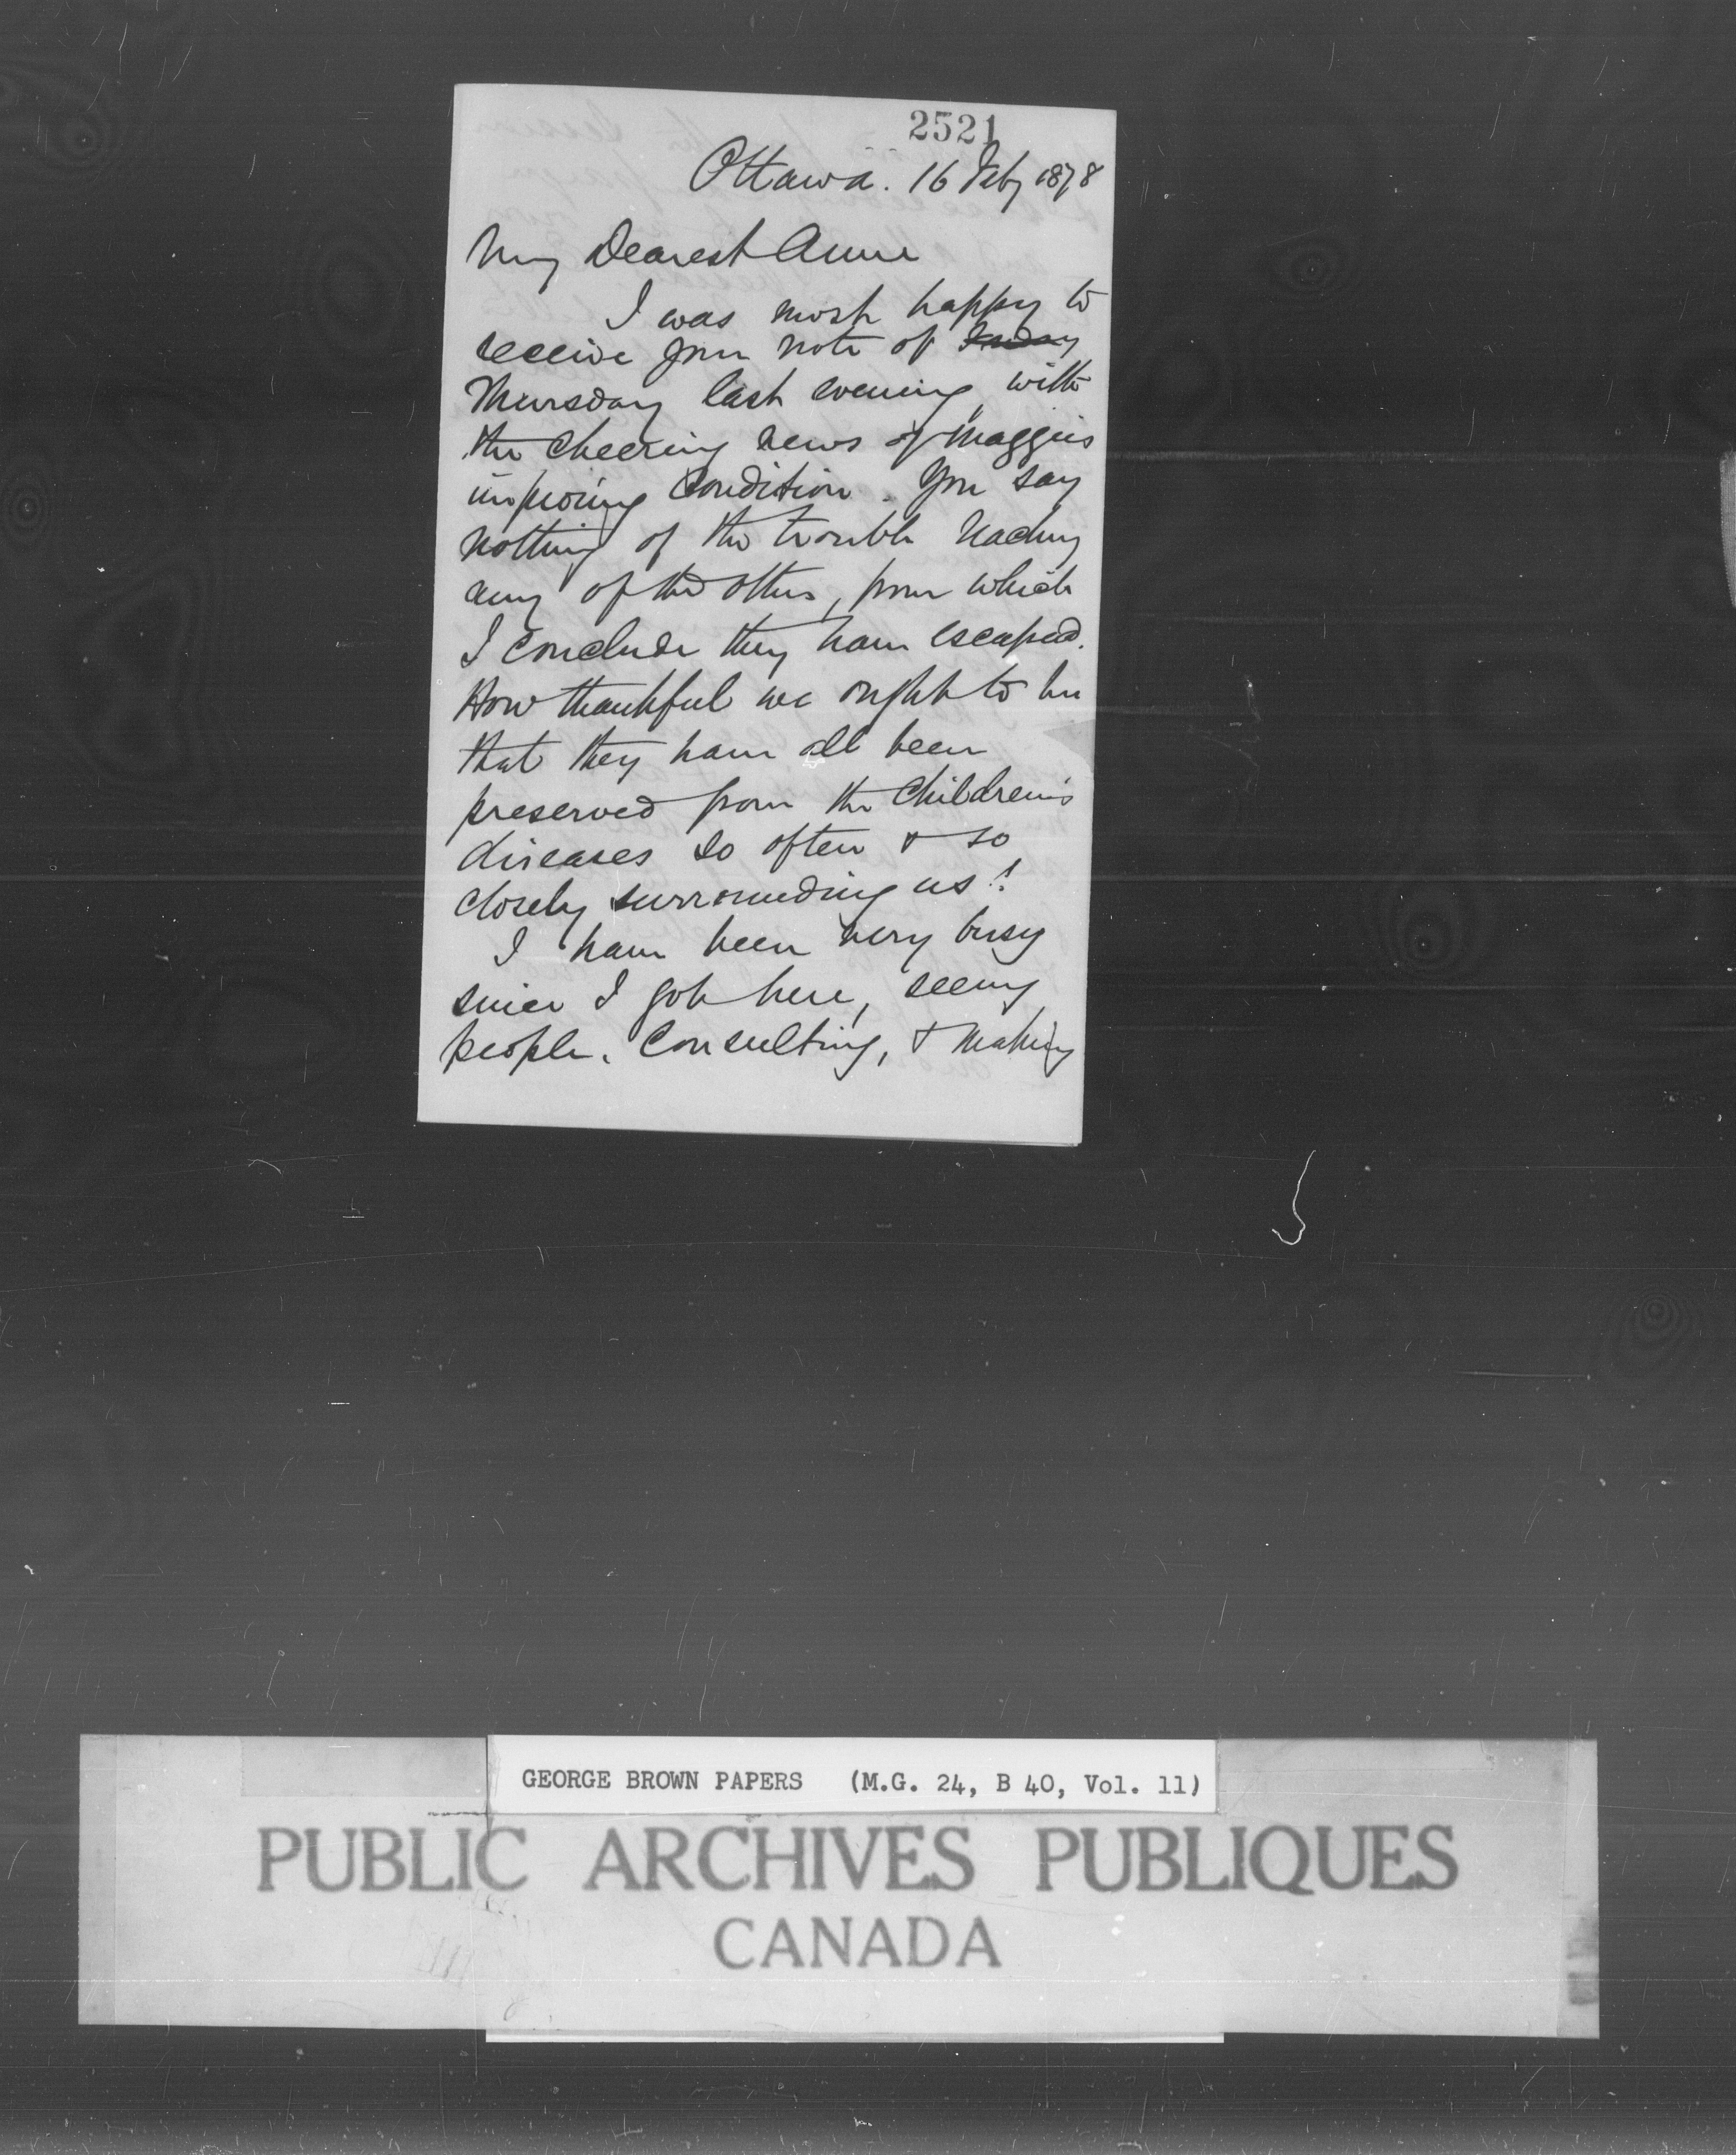 2521
Ottawa. 16 Feby 1878
My Dearest Anne
I was most happy to
receive your note of Friday
Thursday last evening with
the cheering news of Maggie's
improving condition. You say
nothing of the trouble reaching
any of the others, from which
I conclude they have escaped.
How thankful we ought to be
that they have all been
preserved from the children's
diseases so often & so
closely surrounding us!
I have been very busy
since I got here, seeing
people, consulting, & making
GEORGE BROWN PAPERS (M.G. 24, B 40, Vol. 11)
PUBLIC ARCHIVES PUBLIQUES
CANADA